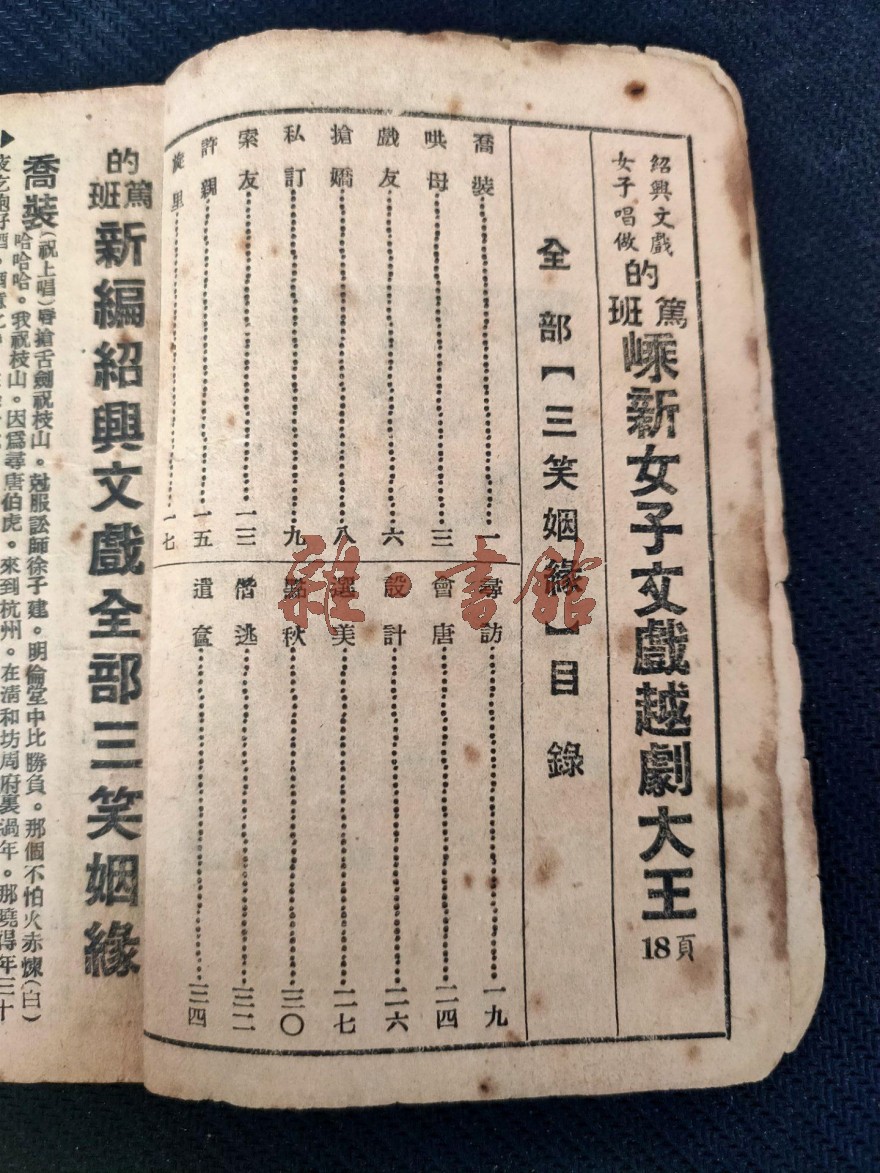 紹興文戲
女子唱做
的篤班
嵊新女子文戲越劇大王
18頁
全部【三笑姻緣】目錄
喬裝 一
哄母 三
戲友 六
搶嬌 八
私訂 九
索友 一三
許親 一五
旋里 一七
尋訪 一九
會唐 二四
設計 二六
選美 二七
點秋 三〇
偕逃 三二
遣奩 三四
的篤班
新編紹興文戲全部三笑姻緣
喬裝
(祝上唱)唇搶舌劍祝枝山。尅服訟師徐子建。明倫堂中比勝負。那個不怕火赤煉(白)
哈哈哈。我祝枝山。因爲尋唐伯虎。來到杭州。在清和坊周府裏過年。那曉得年三十
雜·書館